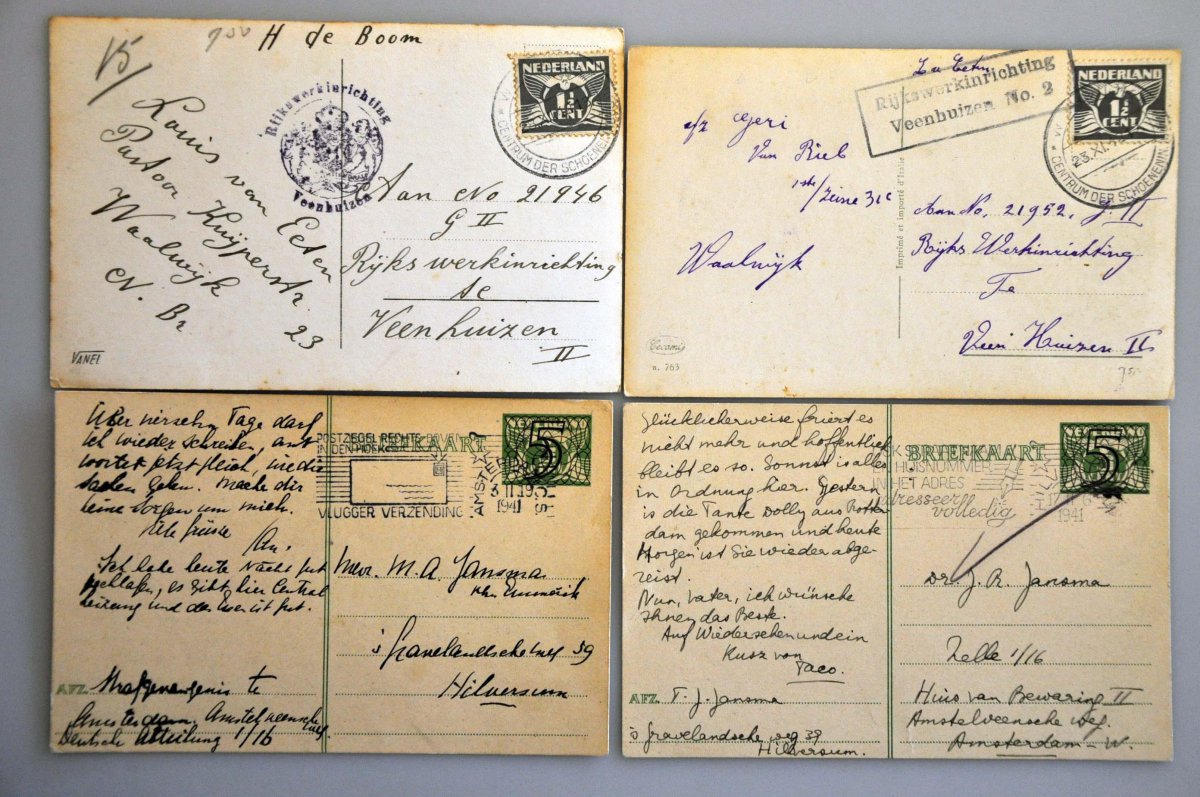 V5
750
H de Boom
Louis van Eeten
Pastoor Kuijperstr. 23
Waalwijk
N. Br
Rijkswerkinrichting
Veenhuizen
NEDERLAND
1½
CENT
CENTRUM DER SCHOENEN
Aan No 21946
G II
Rijks werkinrichting
te
Veenhuizen
II
VANEL
Rijkswerkinrichting
Veenhuizen No. 2
NEDERLAND
1½
CENT
23.XI.
CENTRUM DER SCHOENENIN
afz Geri
Van Riel
Waalwijk
Imprimé et importé d'Italie
Aan No. 21952. G. II
Rijks Werkinrichting
Te
Veen Huizen II
Cecami
n. 763
750
Über vierzehn Tage darf
ich wieder schreiben, ant
wortet jetzt gleich, wie die
Sachen gehen. Mache dir
keine Sorgen um mich.
Alle Grüsse
Ich habe heute Nacht gut
geschlafen, es gibt hier Central
heizung und das Essen ist gut.
BRIEFKAART
5
POSTZEGEL RECHTS
IN DEN HOEK
VLUGGER VERZENDING
AMSTE
1941
Mevr. M. A. Jansma
's Gravelandscheweg 39
Hilversum
AFZ. Strafgevangenis te
Amsterdam, Amstelveensche weg
Deutsche Abteilung 1/16
Glücklicherweise friert es
nicht mehr und hoffentlich
bleibt es so. Sonnst is alles
in Ordnung hier. Gestern
is die Tante Dolly aus Rotter
dam gekommen und heute
Morgen ist Sie wieder abge-
reist.
Nun, Vater, ich wünsche
Ihnen das Beste.
Auf Wiedersehen und ein
Kusz von
Taco.
BRIEFKAART
5
HUISNUMMER
IN HET ADRES
adresseer
volledig
1941
Dr. J. R. Jansma
Zelle 1/16
Huis van Bewaring II
Amstelveensche weg.
Amsterdam - W.
AFZ. T. J. Jansma
's Gravelandsche weg 39
Hilversum.